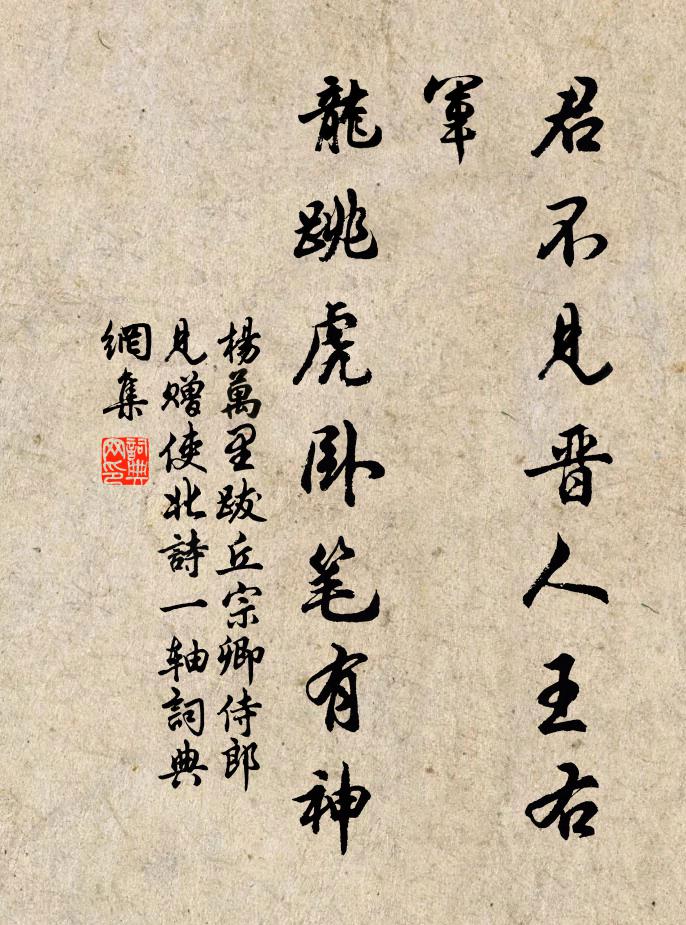 君不見晋人王右
軍
龍跳虎卧笔有神
楊萬里跋丘宗卿侍郎
見贈使北詩一軸詞典
網集
詞典
网印